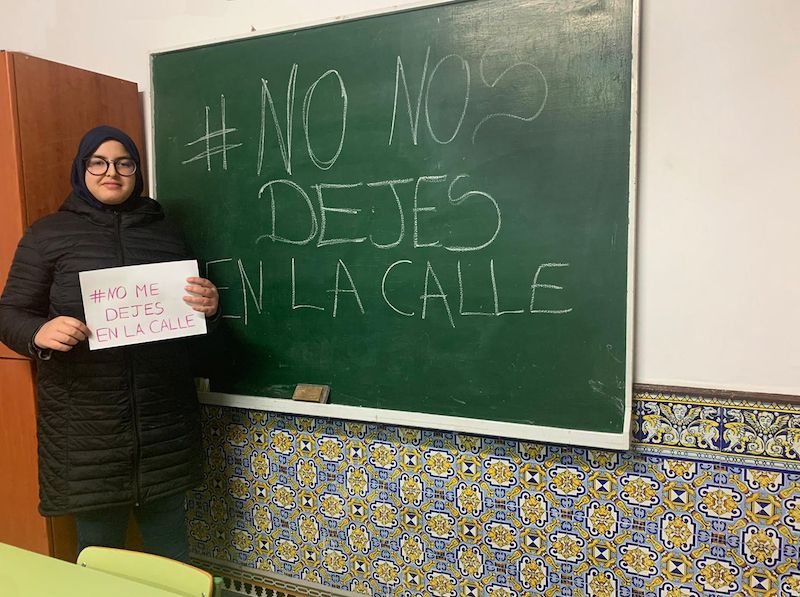 #NO NOS
DEJES
EN LA CALLE
#NO ME
DEJES
EN LA CALLE